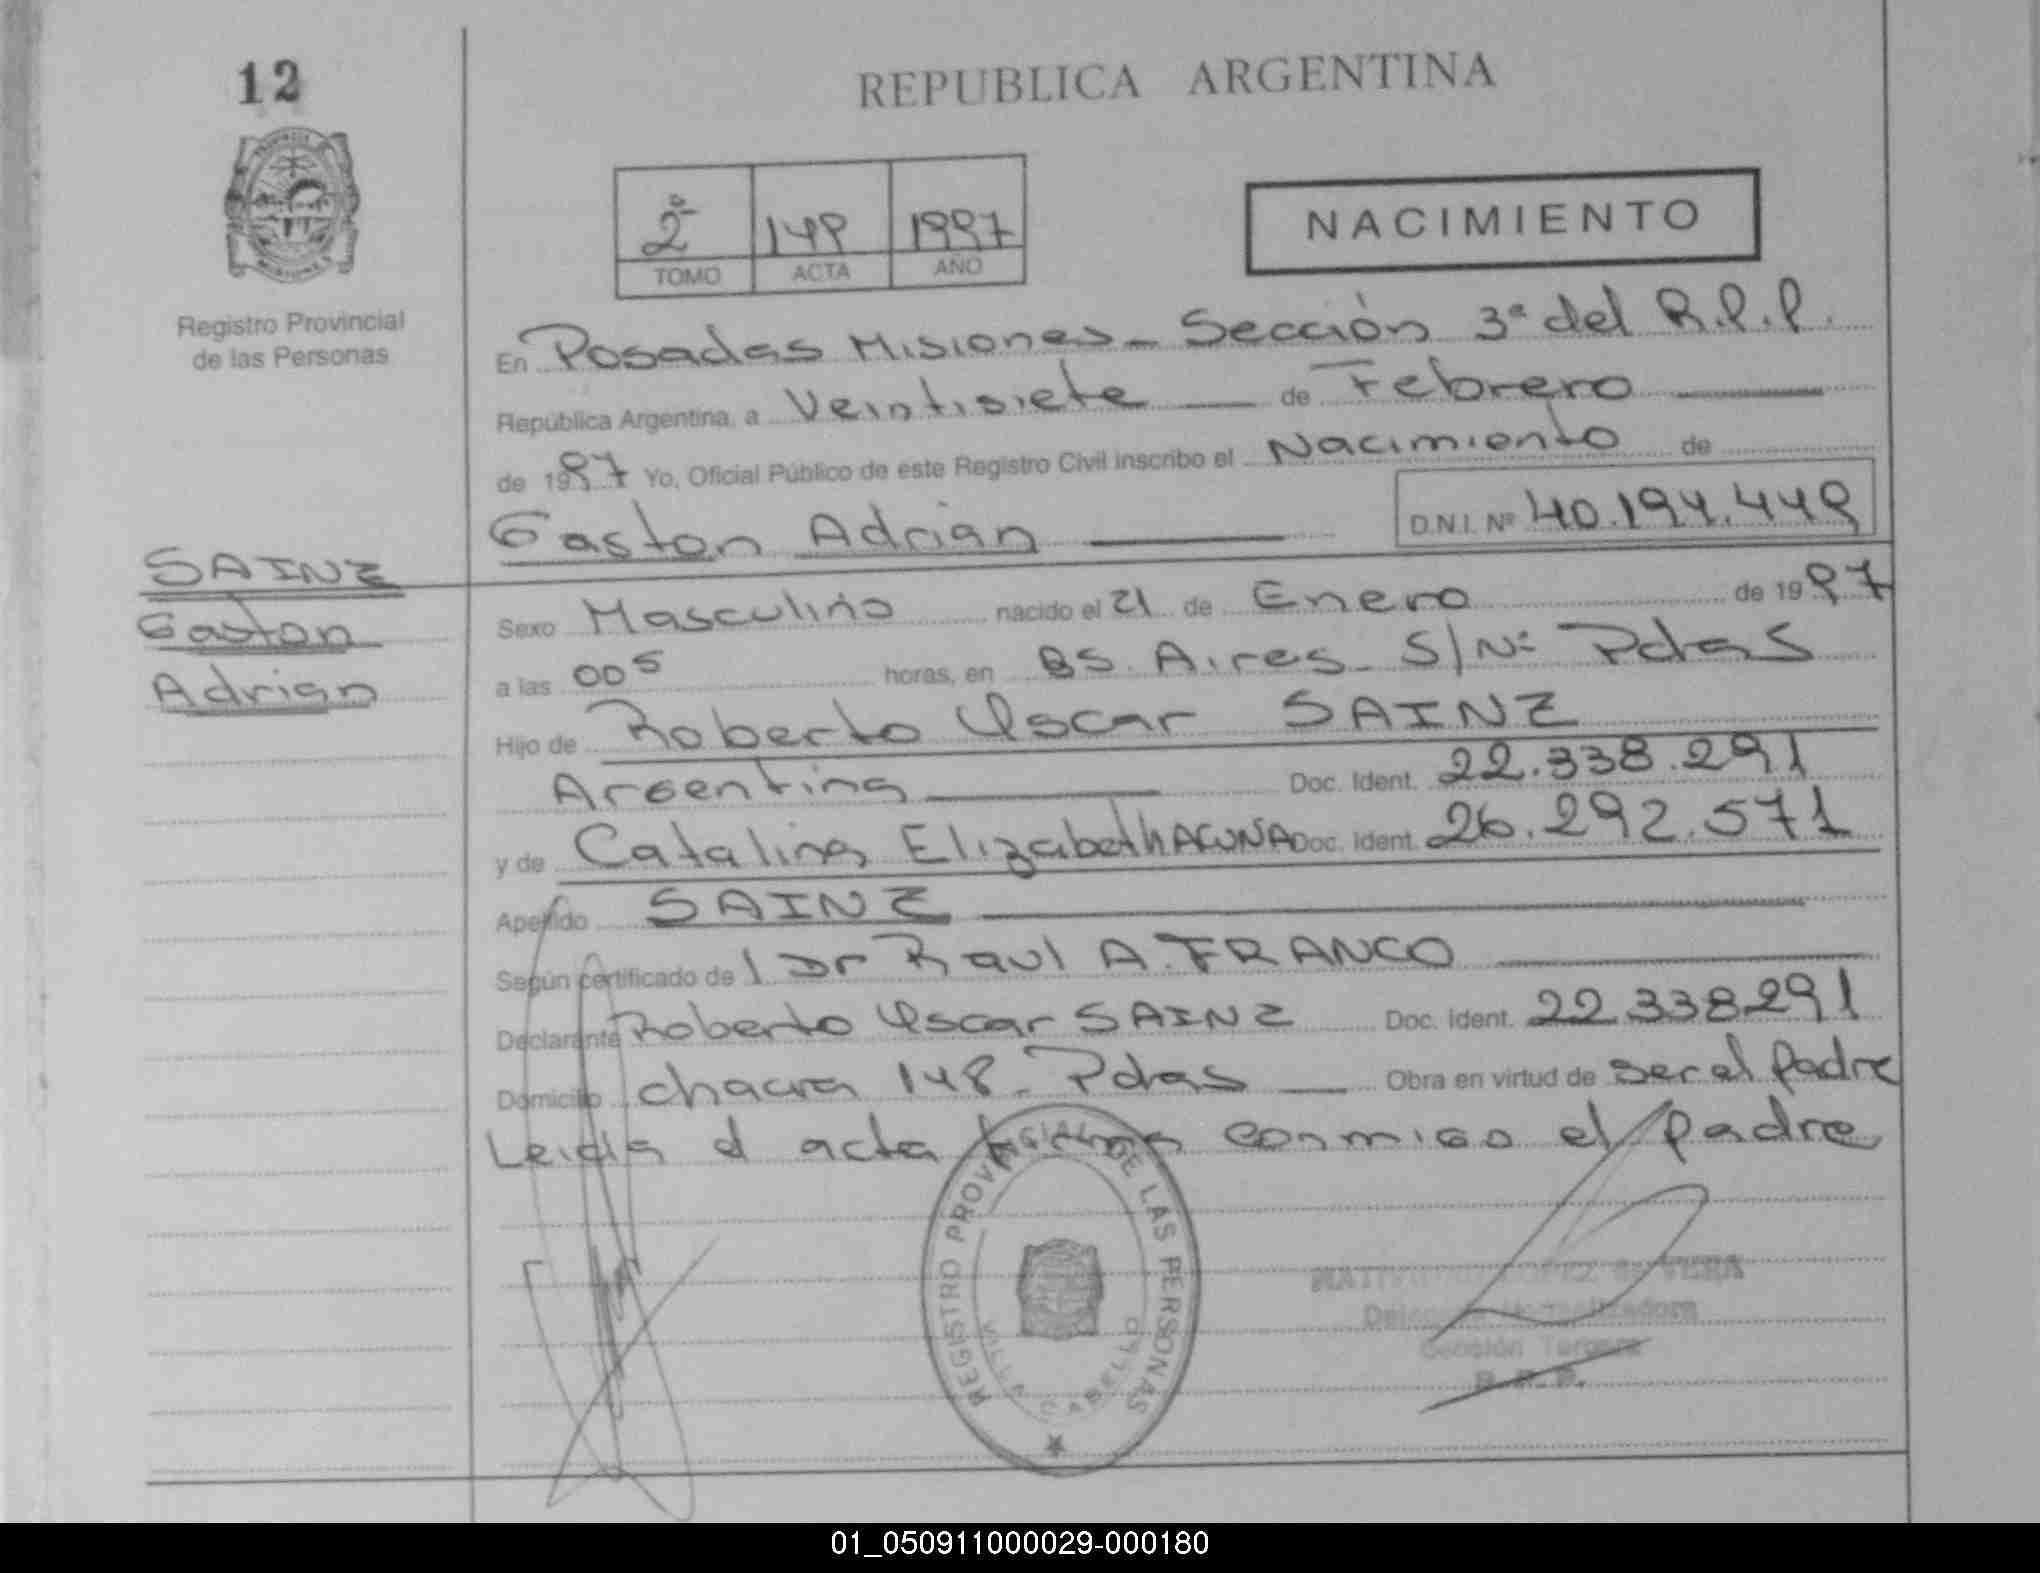 12
REPUBLICA ARGENTINA
PROVINCIA DE MISIONES
Registro Provincial
de las Personas
2º 149 1997
TOMO ACTA AÑO
NACIMIENTO
En Posadas Misiones - Sección 3ª del R.P.P.
República Argentina, a Veintisiete de Febrero
de 1997 Yo, Oficial Público de este Registro Civil inscribo el Nacimiento de
Gaston Adrian
D.N.I. Nº 40.194.449
SAINZ
Gaston
Adrian
Sexo Masculino nacido el 21 de Enero de 1997
a las 00⁵ horas, en BS. Aires - S/Nº Pdas
Hijo de Roberto Oscar SAINZ
Argentina Doc. Ident. 22.338.291
y de Catalina Elizabeth ACUÑA Doc. Ident. 26.292.571
Apellido SAINZ
Según certificado de Dr Raul A. FRANCO
Declarante Roberto Oscar SAINZ Doc. Ident. 22.338291
Domicilio chacra 148 - Pdas Obra en virtud de ser el padre
Leida el acta firma conmigo el padre
REGISTRO PROVINCIAL DE LAS PERSONAS
VILLA CABELLO
LOPEZ de VERA
Delegada Normalizadora
Sección Tercera
R. P. P.
01_050911000029-000180